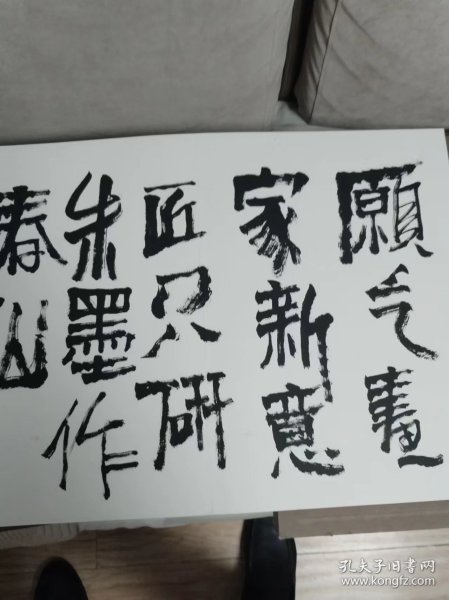 願乞畫
家新意
匠只研
朱墨作
春山
孔夫子旧书网
www.kongfz.com